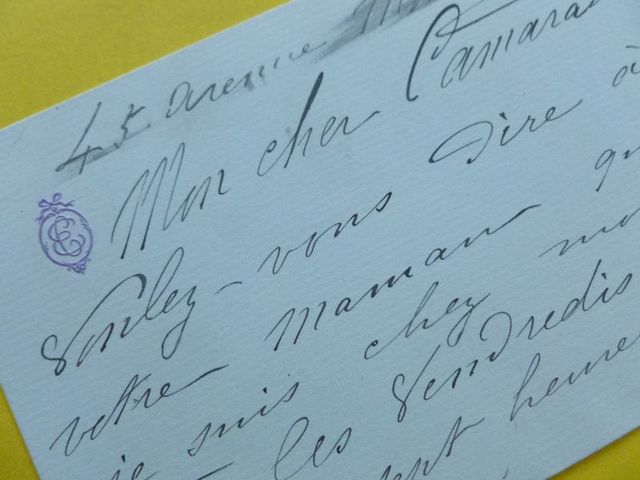 45 avenue
Mon cher Camara
Voulez-vous dire à
votre maman qu
je suis chez mo
les Vendredis
heure